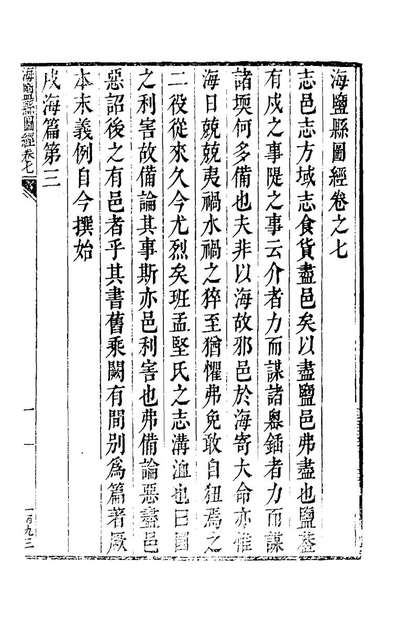 海鹽縣圖經卷之七
志邑志方域志食貨盡邑矣以盡鹽邑弗盡也鹽蓋
有戍之事隄之事云介者力而謀諸臯鍤者力而謀
諸堧何多備也夫非以海故邪邑於海寄大命亦惟
海日兢兢夷禍水禍之猝至猶懼弗免敢自狃焉之
二役從來久今尤烈矣班孟堅氏之志溝洫也曰國
之利害故備論其事斯亦邑利害也弗備論惡盡邑
惡詔後之有邑者乎其書舊乘闕有間別為篇著厥
本末義例自今撰始
戍海篇第三
海鹽縣圖經 卷七
一